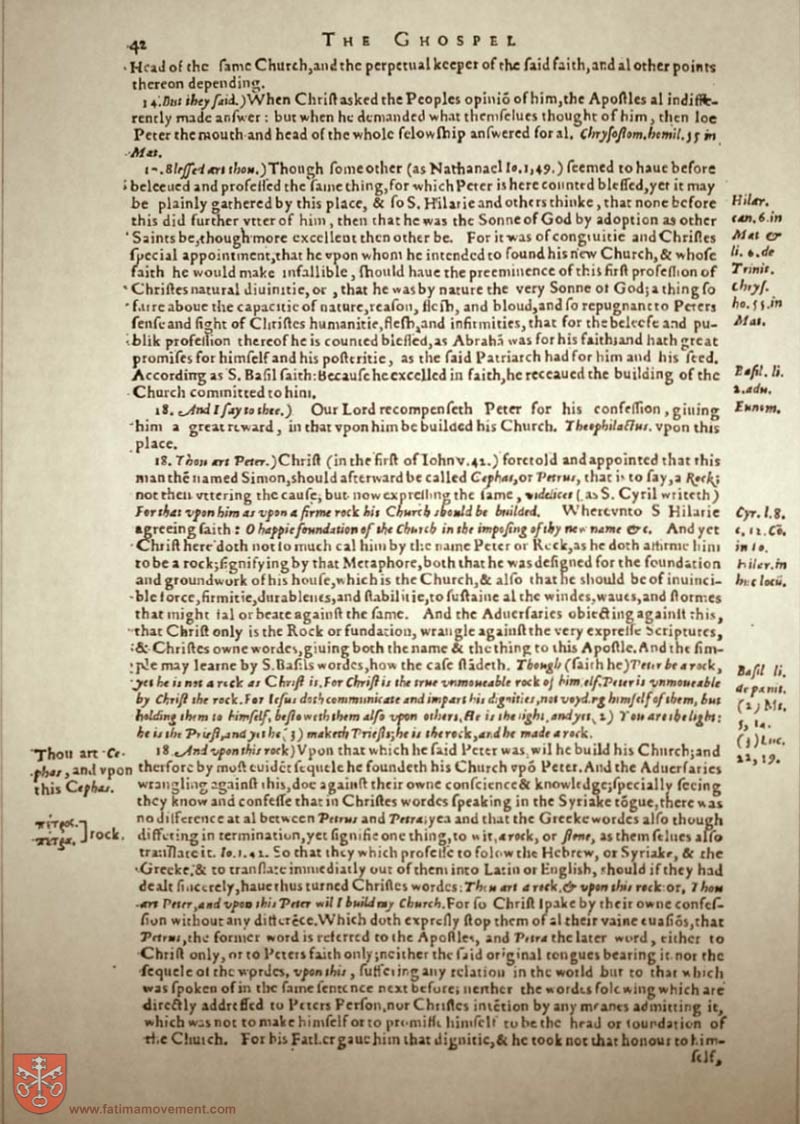 42
THE GHOSPEL
Head of the ſame Church,and the perpetual keeper of the ſaid faith,and al other points
thereon depending.
14. But they ſaid.) When Chriſt asked the Peoples opiniõ of him, the Apoſtles al indiffe-
rently made anſwer: but when he demanded what themſelues thought of him, then loe
Peter the mouth and head of the whole felowſhip anſwered for al. Chryſoſtom. homil. 55 in
Mat.
17. Bleſſed art thou.) Though ſome other (as Nathanael Io. 1, 49.) ſeemed to haue before
beleeued and profeſſed the ſame thing, for which Peter is here counted bleſſed, yet it may
be plainly gathered by this place, & ſo S. Hilarie and others thinke, that none before
this did further vtter of him, then that he was the Sonne of God by adoption as other
Saints be, though more excellent then other be. For it was of congruitie and Chriſtes
ſpecial appointment, that he vpon whom he intended to found his new Church, & whoſe
faith he would make infallible, ſhould haue the preeminence of this firſt profeſſion of
Chriſtes natural diuinitie, or, that he was by nature the very Sonne of God; a thing ſo
farre aboue the capacitie of nature, reaſon, fleſh, and bloud, and ſo repugnant to Peters
ſenſe and ſight of Chriſtes humanitie, fleſh, and infirmities, that for the beleefe and pu-
blik profeſſion thereof he is counted bleſſed, as Abrahã was for his faith: and hath great
promiſes for himſelf and his poſteritie, as the ſaid Patriarch had for him and his ſeed.
According as S. Baſil ſaith: Becauſe he excelled in faith, he receaued the building of the
Church committed to him.
18. And I ſay to thee.) Our Lord recompenſeth Peter for his confeſſion, giuing
him a great reward, in that vpon him he builded his Church. Theophilactus. vpon this
place.
18. Thou art Peter.) Chriſt (in the firſt of Iohn v. 42.) foretold and appointed that this
man the named Simon, ſhould afterward be called Cephas, or Petrus, that is to ſay, a Rock;
not then vttering the cauſe, but now expreſſing the ſame, videlicet (as S. Cyril writeth)
For that vpon him as vpon a firme rock his Church should be builded. Wherevnto S Hilarie
agreeing ſaith: O happie foundation of the Church in the impoſing of thy new name &c. And yet
Chriſt here doth not ſo much cal him by the name Peter or Rock, as he doth affirme him
to be a rock; ſignifying by that Metaphore, both that he was deſigned for the foundation
and groundwork of his houſe, which is the Church, & alſo that he should be of inuinci-
ble force, firmitie, durablenes, and ſtabilitie, to ſuſtaine al the windes, waues, and ſtormes
that might fal or beate againſt the ſame. And the Aduerſaries obiecting againſt this,
that Chriſt only is the Rock or fundation, wrangle againſt the very expreſſe Scriptures,
& Chriſtes owne wordes, giuing both the name & the thing to this Apoſtle. And the ſim-
ple may learne by S. Baſils wordes, how the caſe ſtãdeth. Though (ſaith he) Peter be a rock,
yet he is not a rock as Chriſt is. For Chriſt is the true vnmoueable rock of himſelf. Peter is vnmoueable
by Chriſt the rock. For Ieſus doth communicate and impart his dignities, not voyding himſelf of them, but
holding them to himſelf, beſtoweth them alſo vpon others. He is the light, and yet, 2) You are the light:
he is the Prieſt, and yet he (3) maketh Prieſts; he is the rock, and he made a rock.
18 And vpon this rock) Vpon that which he ſaid Peter was, wil he build his Church; and
therfore by moſt euidẽt ſequele he foundeth his Church vpõ Peter. And the Aduerſaries
wrangling againſt this, doe againſt their owne conſcience & knowledge; ſpecially ſeeing
they know and confeſſe that in Chriſtes wordes ſpeaking in the Syriake tõgue, there was
no difference at al between Petrus and Petra; yea and that the Greeke wordes alſo though
differing in termination, yet ſignifie one thing, to wit, a rock, or ſtone, as them ſelues alſo
tranſlate it. Io. 1. 42. So that they which profeſſe to folow the Hebrew, or Syriake, & the
Greeke, & to tranſlate immediatly out of them into Latin or English, should if they had
dealt ſincerely, haue thus turned Chriſtes wordes: Thou art a rock, & vpon this rock: or, Thou
art Peter, and vpon this Peter wil I build my Church. For ſo Chriſt ſpake by their owne confeſ-
ſion without any differẽce. Which doth expreſly ſtop them of al their vaine euaſiõs, that
Petrus, the former word is referred to the Apoſtles, and Petra the later word, either to
Chriſt only, or to Peters faith only; neither the ſaid original tongues bearing it, nor the
ſequele of the wordes, vpon this, ſuffering any relation in the world but to that which
was ſpoken of in the ſame ſentence next before; neither the wordes folowing which are
directly addreſſed to Peters Perſon, nor Chriſtes intẽtion by any meanes admitting it,
which was not to make himſelf or to promiſe himſelf to be the head or foundation of
the Church. For his Father gaue him that dignitie, & he took not that honour to him-
ſelf,
Hilar.
can. 6. in
Mat &
li. 6. de
Trinit.
Chryſ.
ho. 55. in
Mat.
Baſil. li.
2. adu.
Eunom.
Cyr. l. 8.
c. 12. Cõ.
in Io.
Hiler. in
hũc locũ.
Baſil li.
de pœnit.
(2) Mt.
5, 14.
(3) Luc.
22, 19.
Thou art Ce-
phas, and vpon
this Cephas.
πέτρος.
πέτρα. ] rock.
www.fatimamovement.com